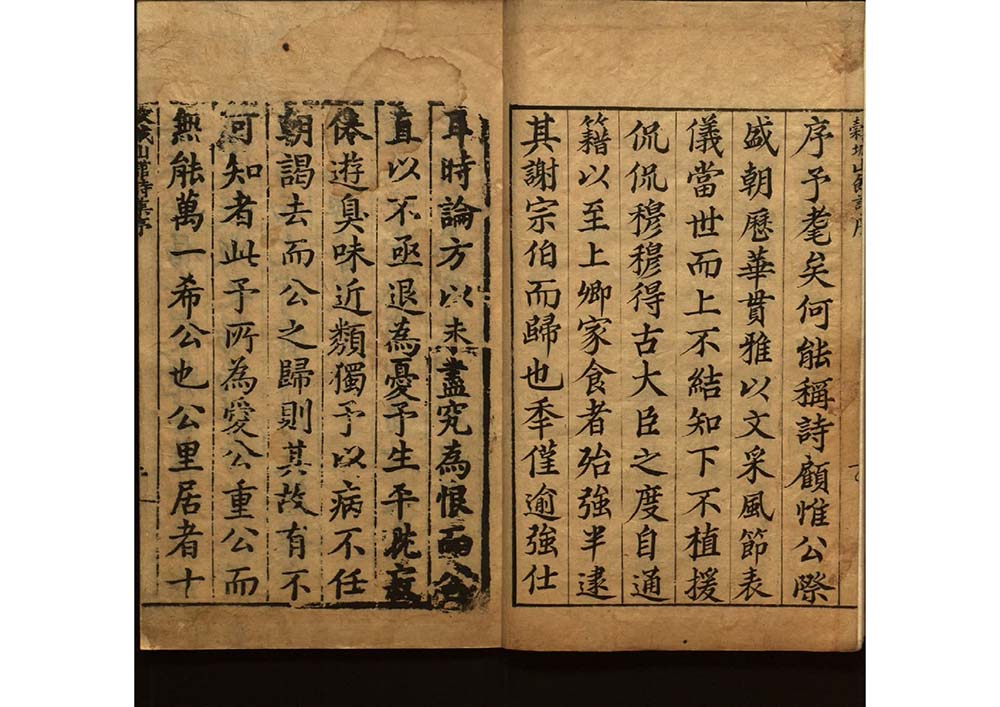 穀城山館詩序
序予耄矣何能稱詩顧惟公際
盛朝歷華貫雅以文采風節表
儀當世而上不結知下不植援
侃侃穆穆得古大臣之度自通
籍以至上卿家食者殆強半逮
其謝宗伯而歸也秊僅逾強仕
耳時論方以未盡究為恨而公
直以不亟退為憂予生平耽寂
倦遊臭味近類獨予以病不任
朝謁去而公之歸則其故有不
可知者此予所為愛公重公而
無能萬一希公也公里居者十
城山館詩集序